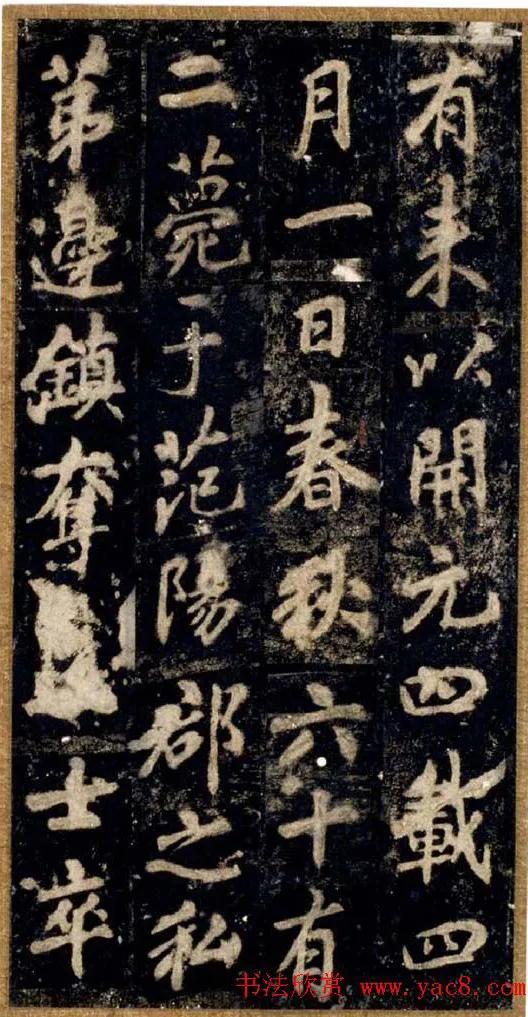 有来以開元四載四
月一日春秋六十有
二薨于范陽郡之私
苐邊鎮奪士卒
书法欣赏 www.yac8.com